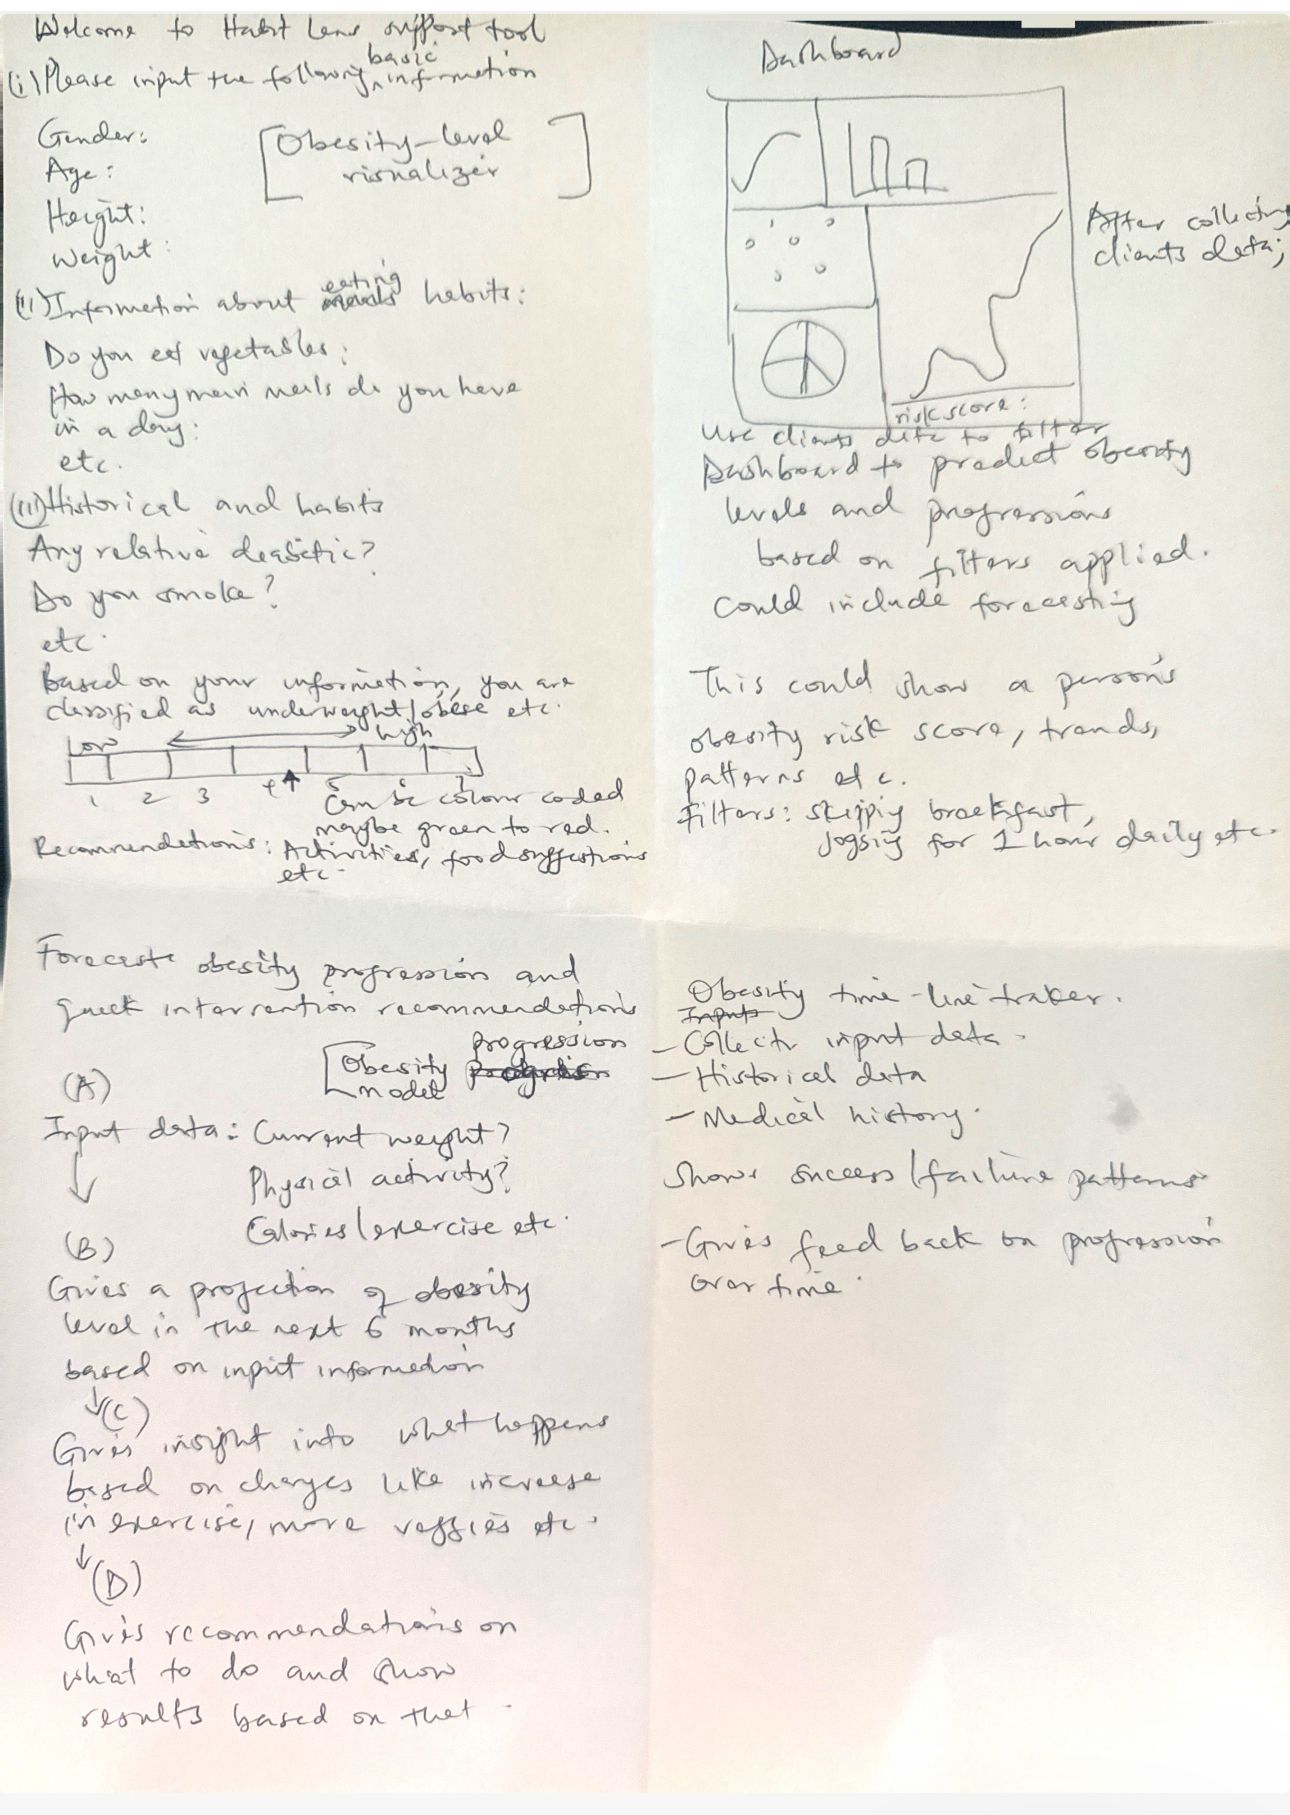 Welcome to Habit Lens support tool
basic
(i) Please input the following information
Gender:
Age:
Height:
Weight:
[Obesity-level
visualizer]
eating
(ii) Information about meals habits:
Do you eat vegetables:
How many main meals do you have
in a day:
etc.
(iii) Historical and habits
Any relative diabetic?
Do you smoke?
etc.
Based on your information, you are
classified as underweight/obese etc.
Low high
1 2 3 4 5 6 7
Can be colour coded
maybe green to red.
Recommendations: Activities, food suggestions
etc.
Dashboard
After collecting
clients data;
risk score:
Use clients data to filter
Dashboard to predict obesity
levels and progressions
based on filters applied.
Could include forecasting
This could show a person's
obesity risk score, trends,
patterns etc.
Filters: skipping breakfast,
Jogging for 1 hour daily etc.
Forecasts obesity progression and
quick intervention recommendations
progression
[Obesity
model
(A)
Input data: Current weight?
Physical activity?
Calories/exercise etc.
(B)
Gives a projection of obesity
level in the next 6 months
based on input information
(C)
Gives insight into what happens
based on changes like increase
in exercise, more veggies etc.
(D)
Gives recommendations on
what to do and show
results based on that.
Obesity time-line traker.
Inputs
- Collects input data.
- Historical data
- Medical history.
Shows success/failure patterns
- Gives feed back on progression
over time.